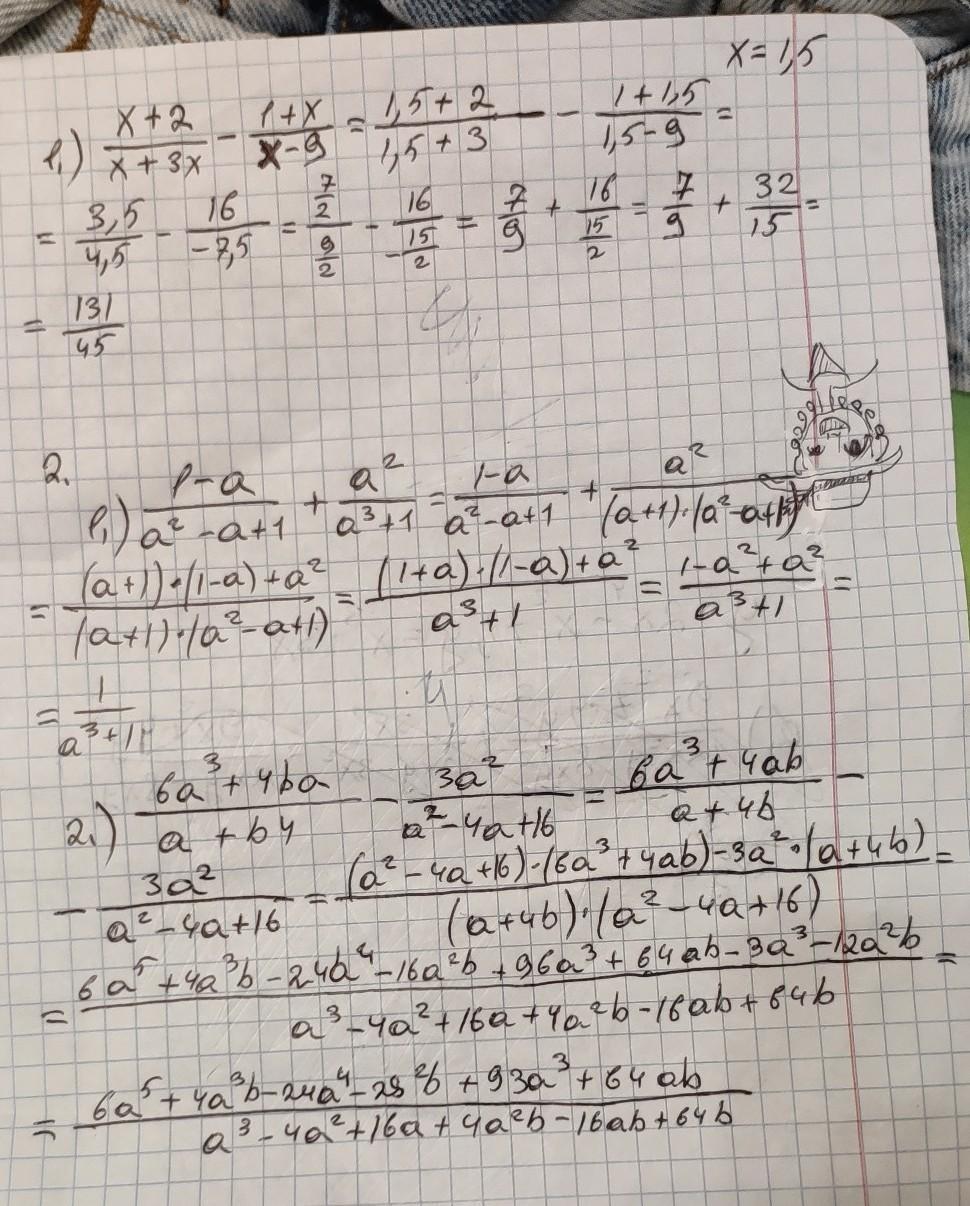 x = 1,5
1.) (x+2)/(x+3x) - (1+x)/(x-9) = (1,5+2)/(1,5+3) - (1+1,5)/(1,5-9) =
= 3,5/4,5 - 16/(-7,5) = (7/2)/(9/2) - 16/(-15/2) = 7/9 + 16/(15/2) = 7/9 + 32/15 =
= 131/45
2.
1.) (1-a)/(a²-a+1) + a²/(a³+1) = (1-a)/(a²-a+1) + a²/((a+1)·(a²-a+1))
= ((a+1)·(1-a)+a²)/((a+1)·(a²-a+1)) = ((1+a)·(1-a)+a²)/(a³+1) = (1-a²+a²)/(a³+1) =
= 1/(a³+1)
2.) (6a³+4ba)/(a+b4) - 3a²/(a²-4a+16) = (6a³+4ab)/(a+4b) -
- 3a²/(a²-4a+16) = ((a²-4a+16)·(6a³+4ab)-3a²·(a+4b))/((a+4b)·(a²-4a+16)) =
= (6a⁵+4a³b-24b⁴-16a²b+96a³+64ab-3a³-12a²b)/(a³-4a²+16a+4a²b-16ab+64b) =
= (6a⁵+4a³b-24a⁴-28²b+93a³+64ab)/(a³-4a²+16a+4a²b-16ab+64b)